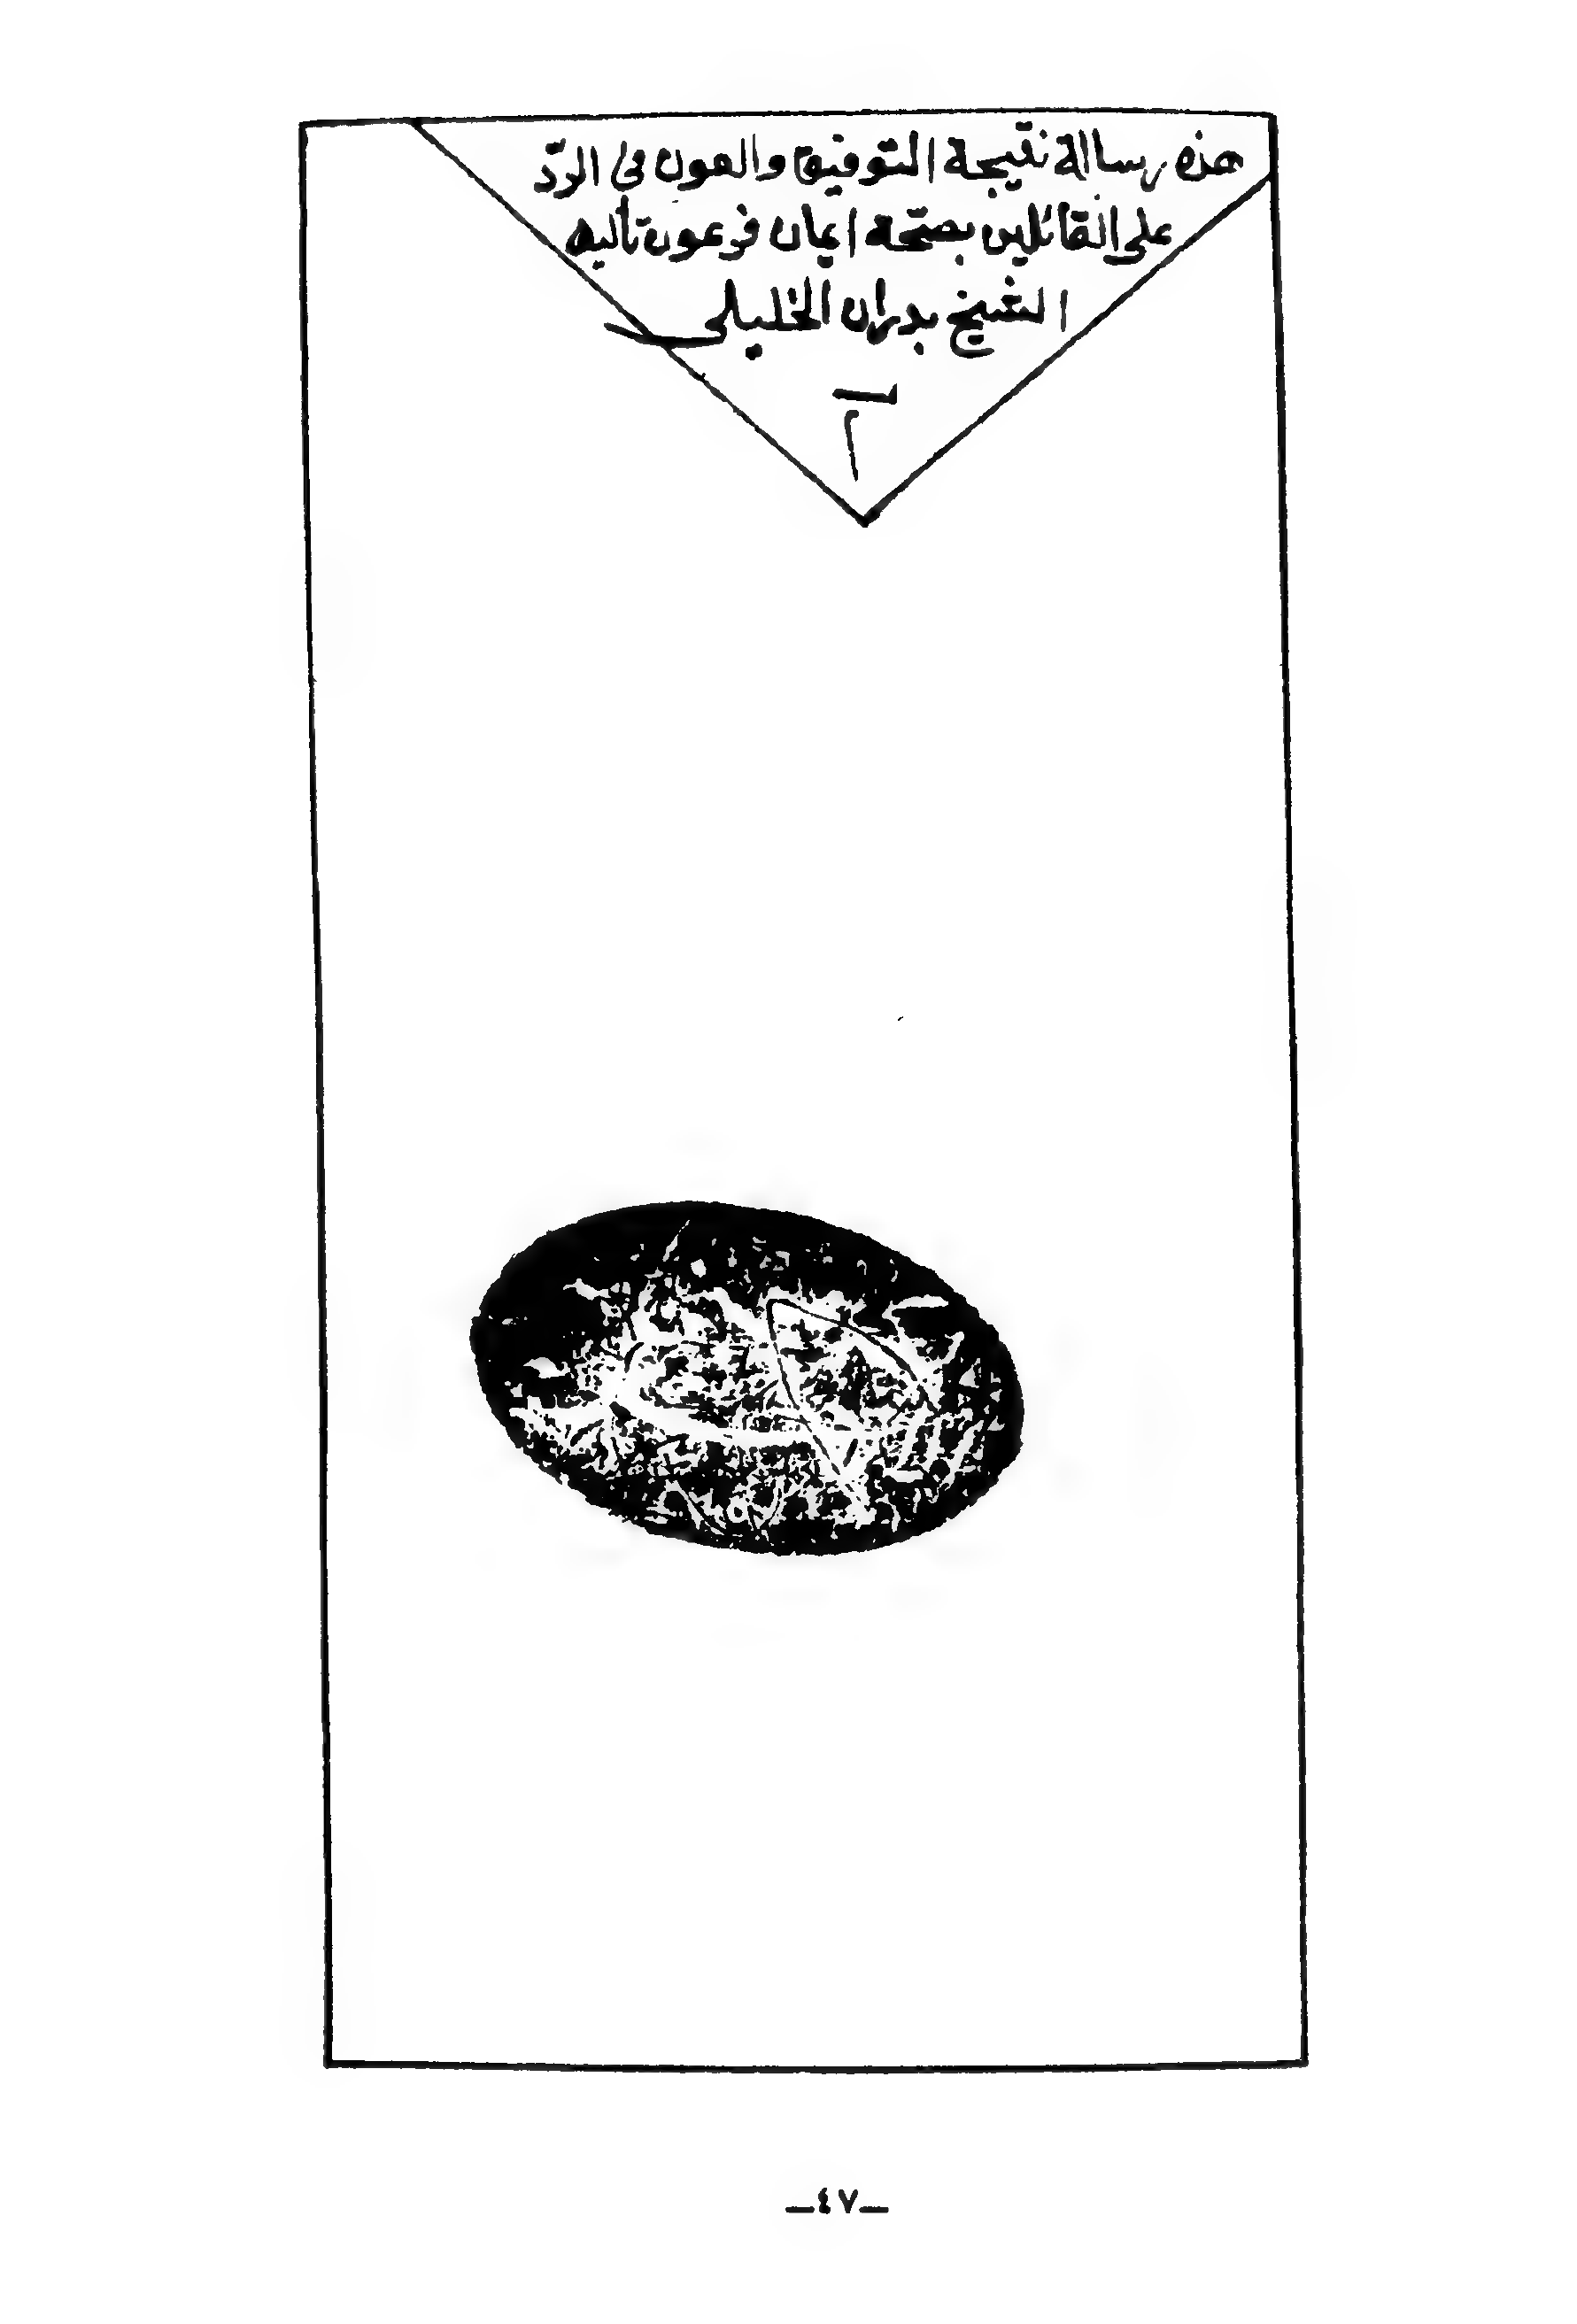 هذه رسالة نتيجة التوفيق والعون في الردّ
على القائلين بصحّة ايمان فرعون تأليف
الشيخ بدران الخليلى
ـ٤٧ـ